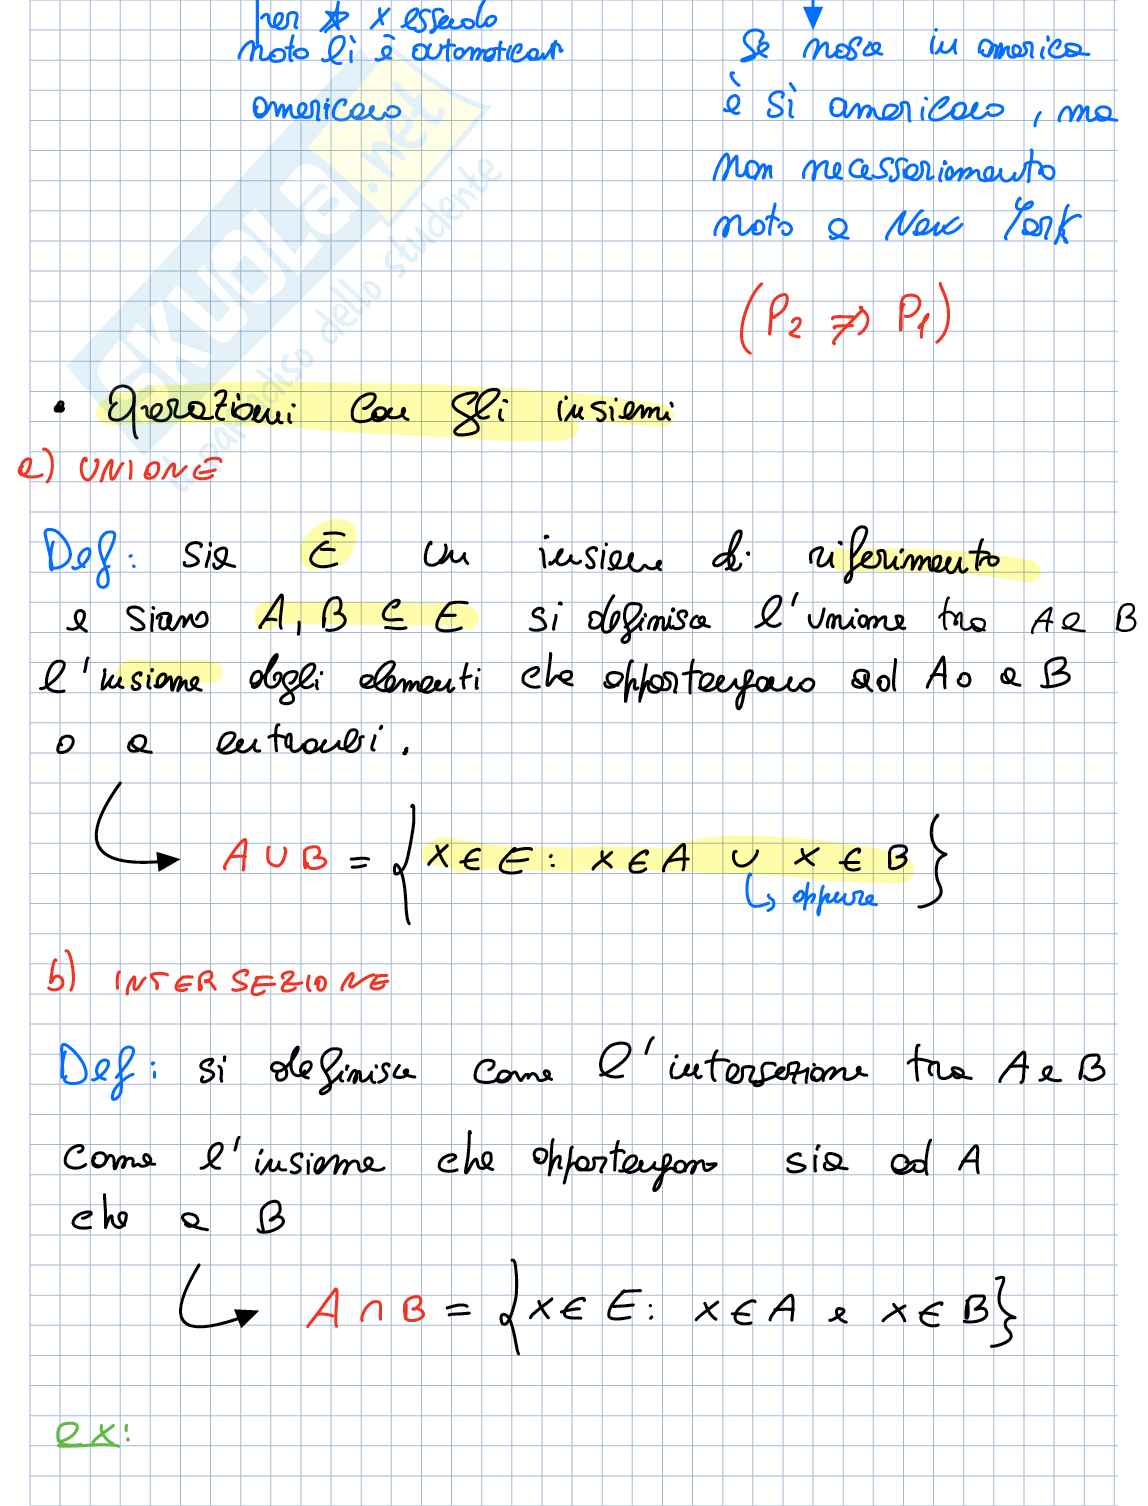 per x essendo
nato lì è automaticam
americano
Se nasce in america
è sì americano, ma
non necessariamente
nato a New York
(P₂ ⇏ P₁)
SKUOLA.net
il paradiso dello studente
• Operazioni con gli insiemi
a) UNIONE
Def: sia E un insieme di riferimento
e siano A, B ⊆ E si definisce l'unione tra A e B
l'insieme degli elementi che appartengono ad A o a B
o a entrambi.
A ∪ B = { x ∈ E : x ∈ A ∪ x ∈ B }
↳ oppure
b) INTERSEZIONE
Def: si definisce come l'intersezione tra A e B
come l'insieme che appartengono sia ad A
che a B
A ∩ B = { x ∈ E : x ∈ A e x ∈ B }
ex: